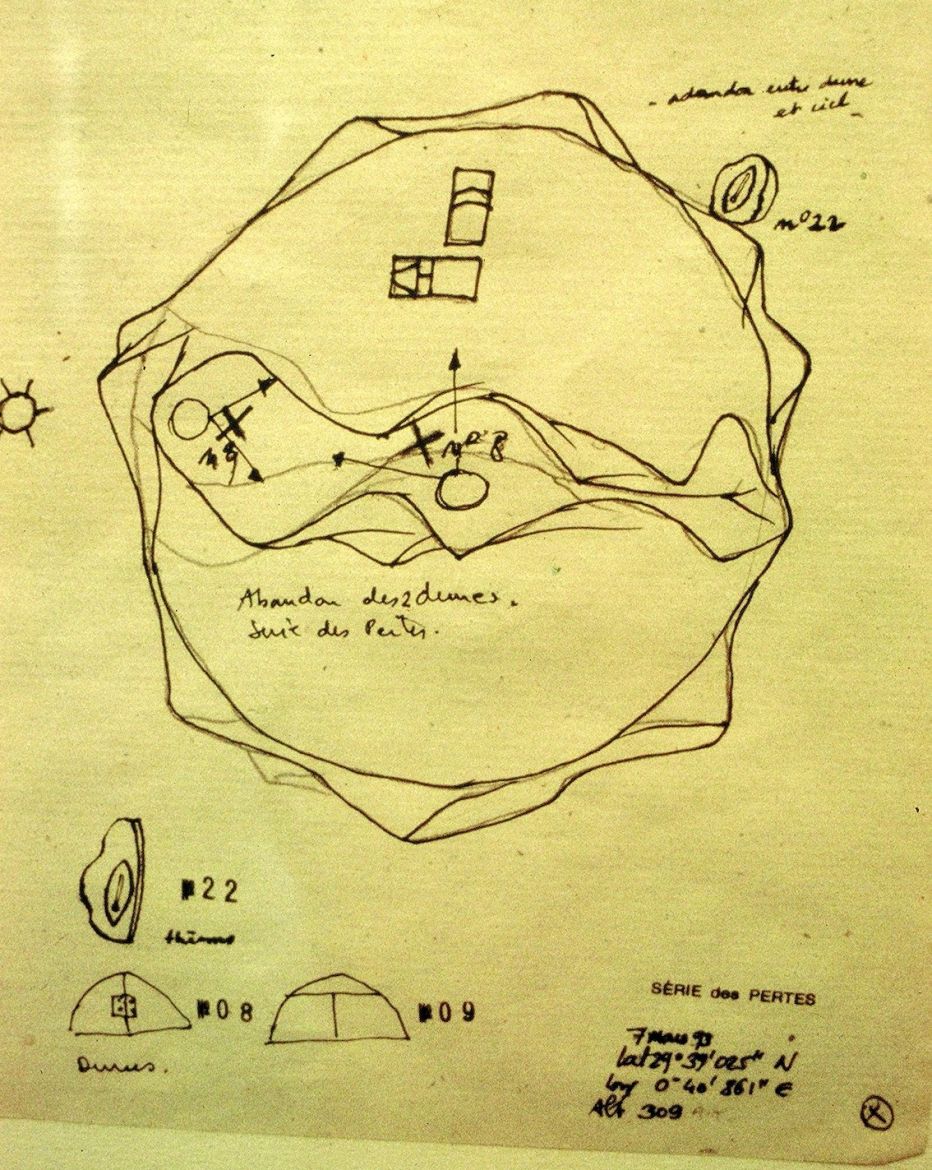 - abandon entre dune
et ciel -
n° 22
n° 8
Abandon des 2 dunes.
Série des Pertes.
N°22
N°08
N°09
Dunes.
SÉRIE des PERTES
7 Mars 93
Lat 29° 39' 025" N
long 0° 40' 861" E
Alt 309